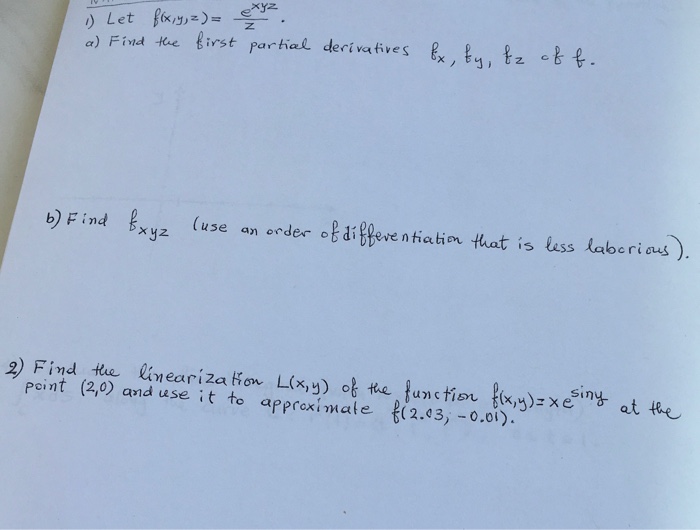 1) Let f(x,y,z) = e^xyz / z .
a) Find the first partial derivatives fx, fy, fz of f.
b) Find fxyz (use an order of differentiation that is less laborious).
2) Find the linearization L(x,y) of the function f(x,y)=xe^siny at the
point (2,0) and use it to approximate f(2.03, -0.01).